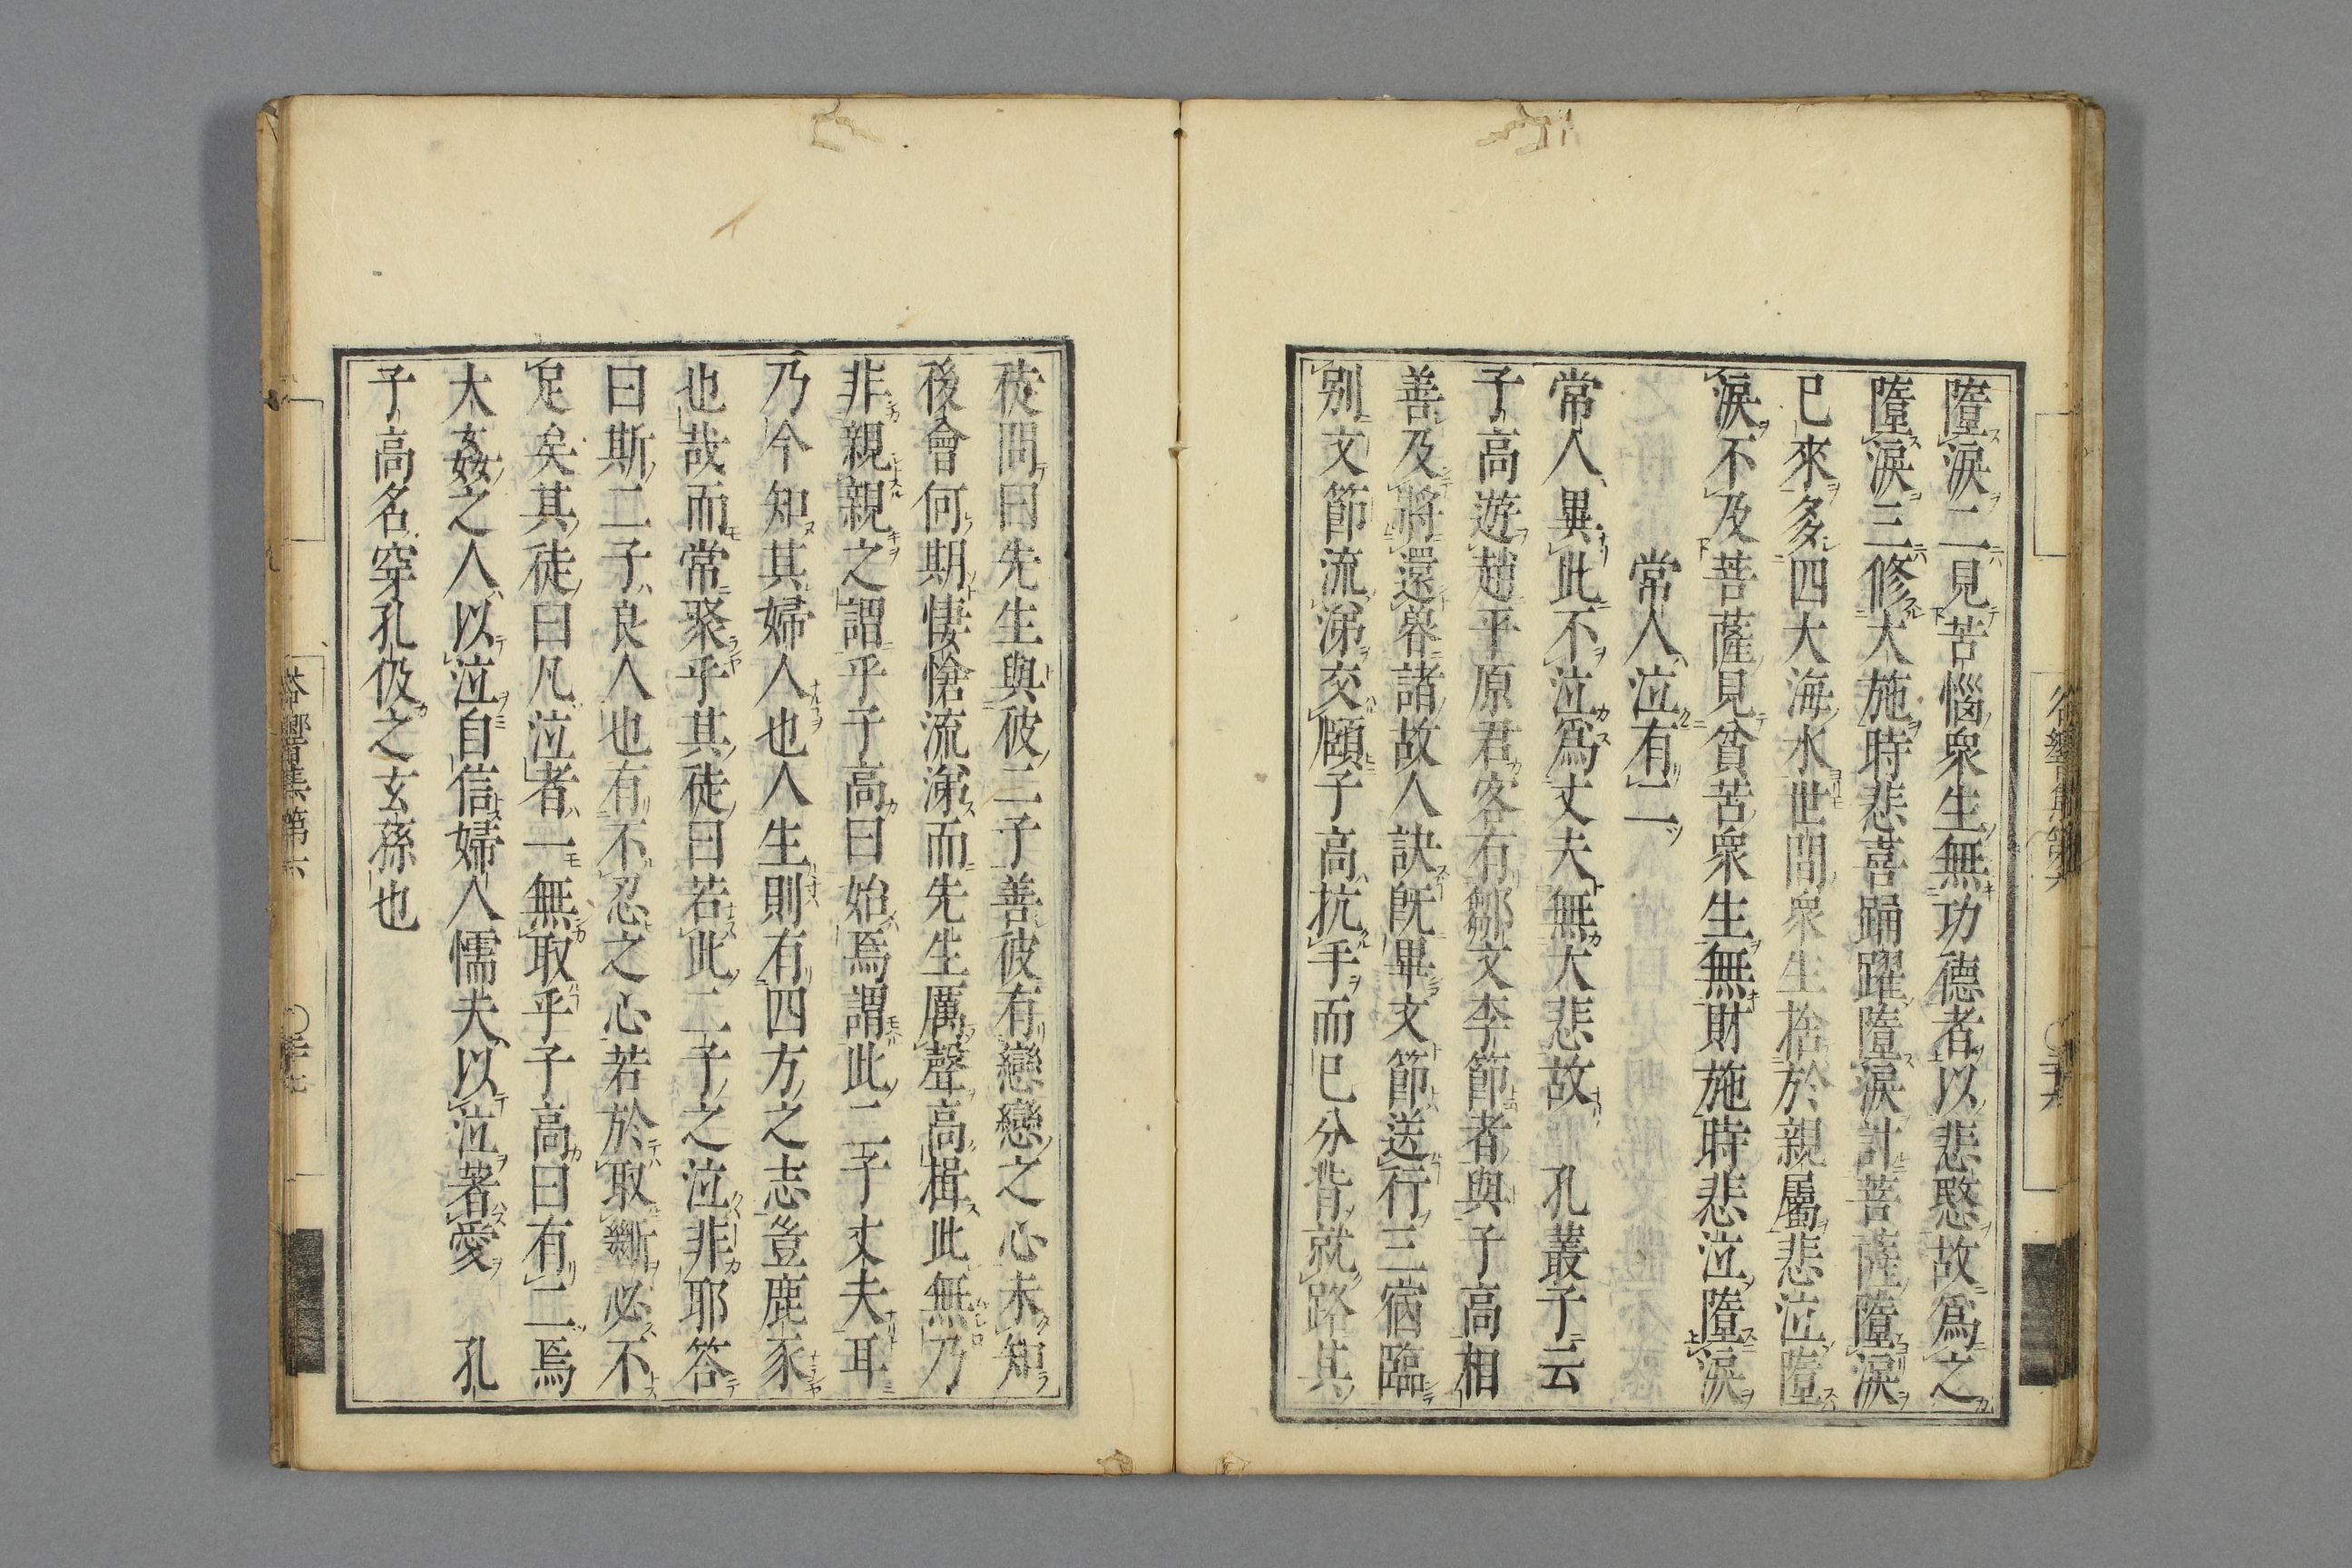 墮涙二見苦惱衆生無功德者以悲愍故爲之
墮涙三修大施時悲喜踊躍墮涙計菩薩墮涙
已來多四大海水世間衆生捨於親屬悲泣墮
涙不及菩薩見貧苦衆生無財施時悲泣墮涙
常人泣有二
常人異此不泣爲丈夫無大悲故 孔叢子云
子高遊趙平原君客有鄒文李節者與子高相
善及將還魯諸故人訣既畢文節送行三宿臨
別文節流涕交頤子高抗手而已分背就路其
徒問曰先生與彼二子善彼有戀戀之心未知
後會何期悽愴流涕而先生厲聲高揖此無乃
非親親之謂乎子高曰始焉謂此二子丈夫耳
乃今知其婦人也人生則有四方之志豈鹿豕
也哉而常聚乎其徒曰若此二子之泣非耶答
曰斯二子良人也有不忍之心若於取斷必不
足矣其徒曰凡泣者一無取乎子高曰有二焉
大姦之人以泣自信婦人懦夫以泣著愛 孔
子高名穿孔伋之玄孫也
谷響集第六